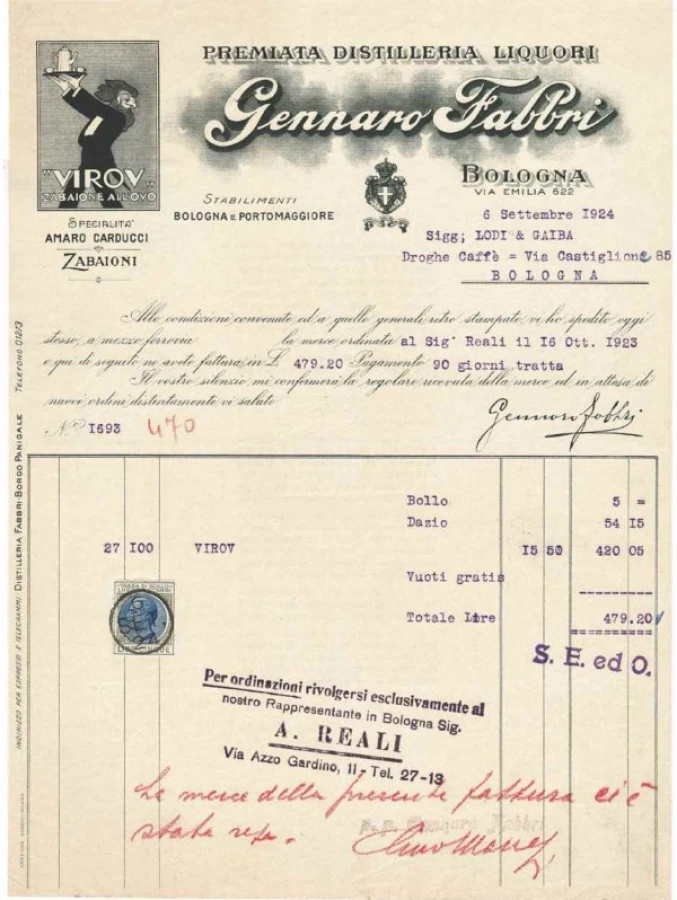 PREMIATA DISTILLERIA LIQUORI
Gennaro Fabbri
"VIROV"
ZABAIONE ALL'OVO
SPECIALITA'
AMARO CARDUCCI
ZABAIONI
STABILIMENTI
BOLOGNA E PORTOMAGGIORE
BOLOGNA
VIA EMILIA 622
6 Settembre 1924
Sigg; LODI & GAIBA
Droghe Caffè = Via Castiglione 85
BOLOGNA
Alle condizioni convenute ed a quelle generali retro stampate, vi ho spedito oggi
stesso, a mezzo ferrovia la merce ordinata al Sig' Reali il 16 Ott. 1923
e qui di seguito ne avete fattura, in L. 479.20 Pagamento 90 giorni tratta
Il vostro silenzio mi confermerà la regolare ricevuta della merce ed in attesa di
nuovi ordini distintamente vi saluto
Gennaro Fabbri
N° 1693 470
INDIRIZZO PER ESPRESSI E TELEGRAMMI: DISTILLERIA FABBRI-BORGO PANIGALE TELEFONO 01273
Bollo 5 =
Dazio 54 15
27 100 VIROV 15 50 420 05
Vuoti gratis
Totale Lire 479.20
TASSA DI BOLLO
CINQUE
S. E. ed O.
Per ordinazioni rivolgersi esclusivamente al
nostro Rappresentante in Bologna Sig.
A. REALI
Via Azzo Gardino, 11 - Tel. 27-13
La merce della presente fattura ci è
stata resa.
p. p. Gennaro Fabbri